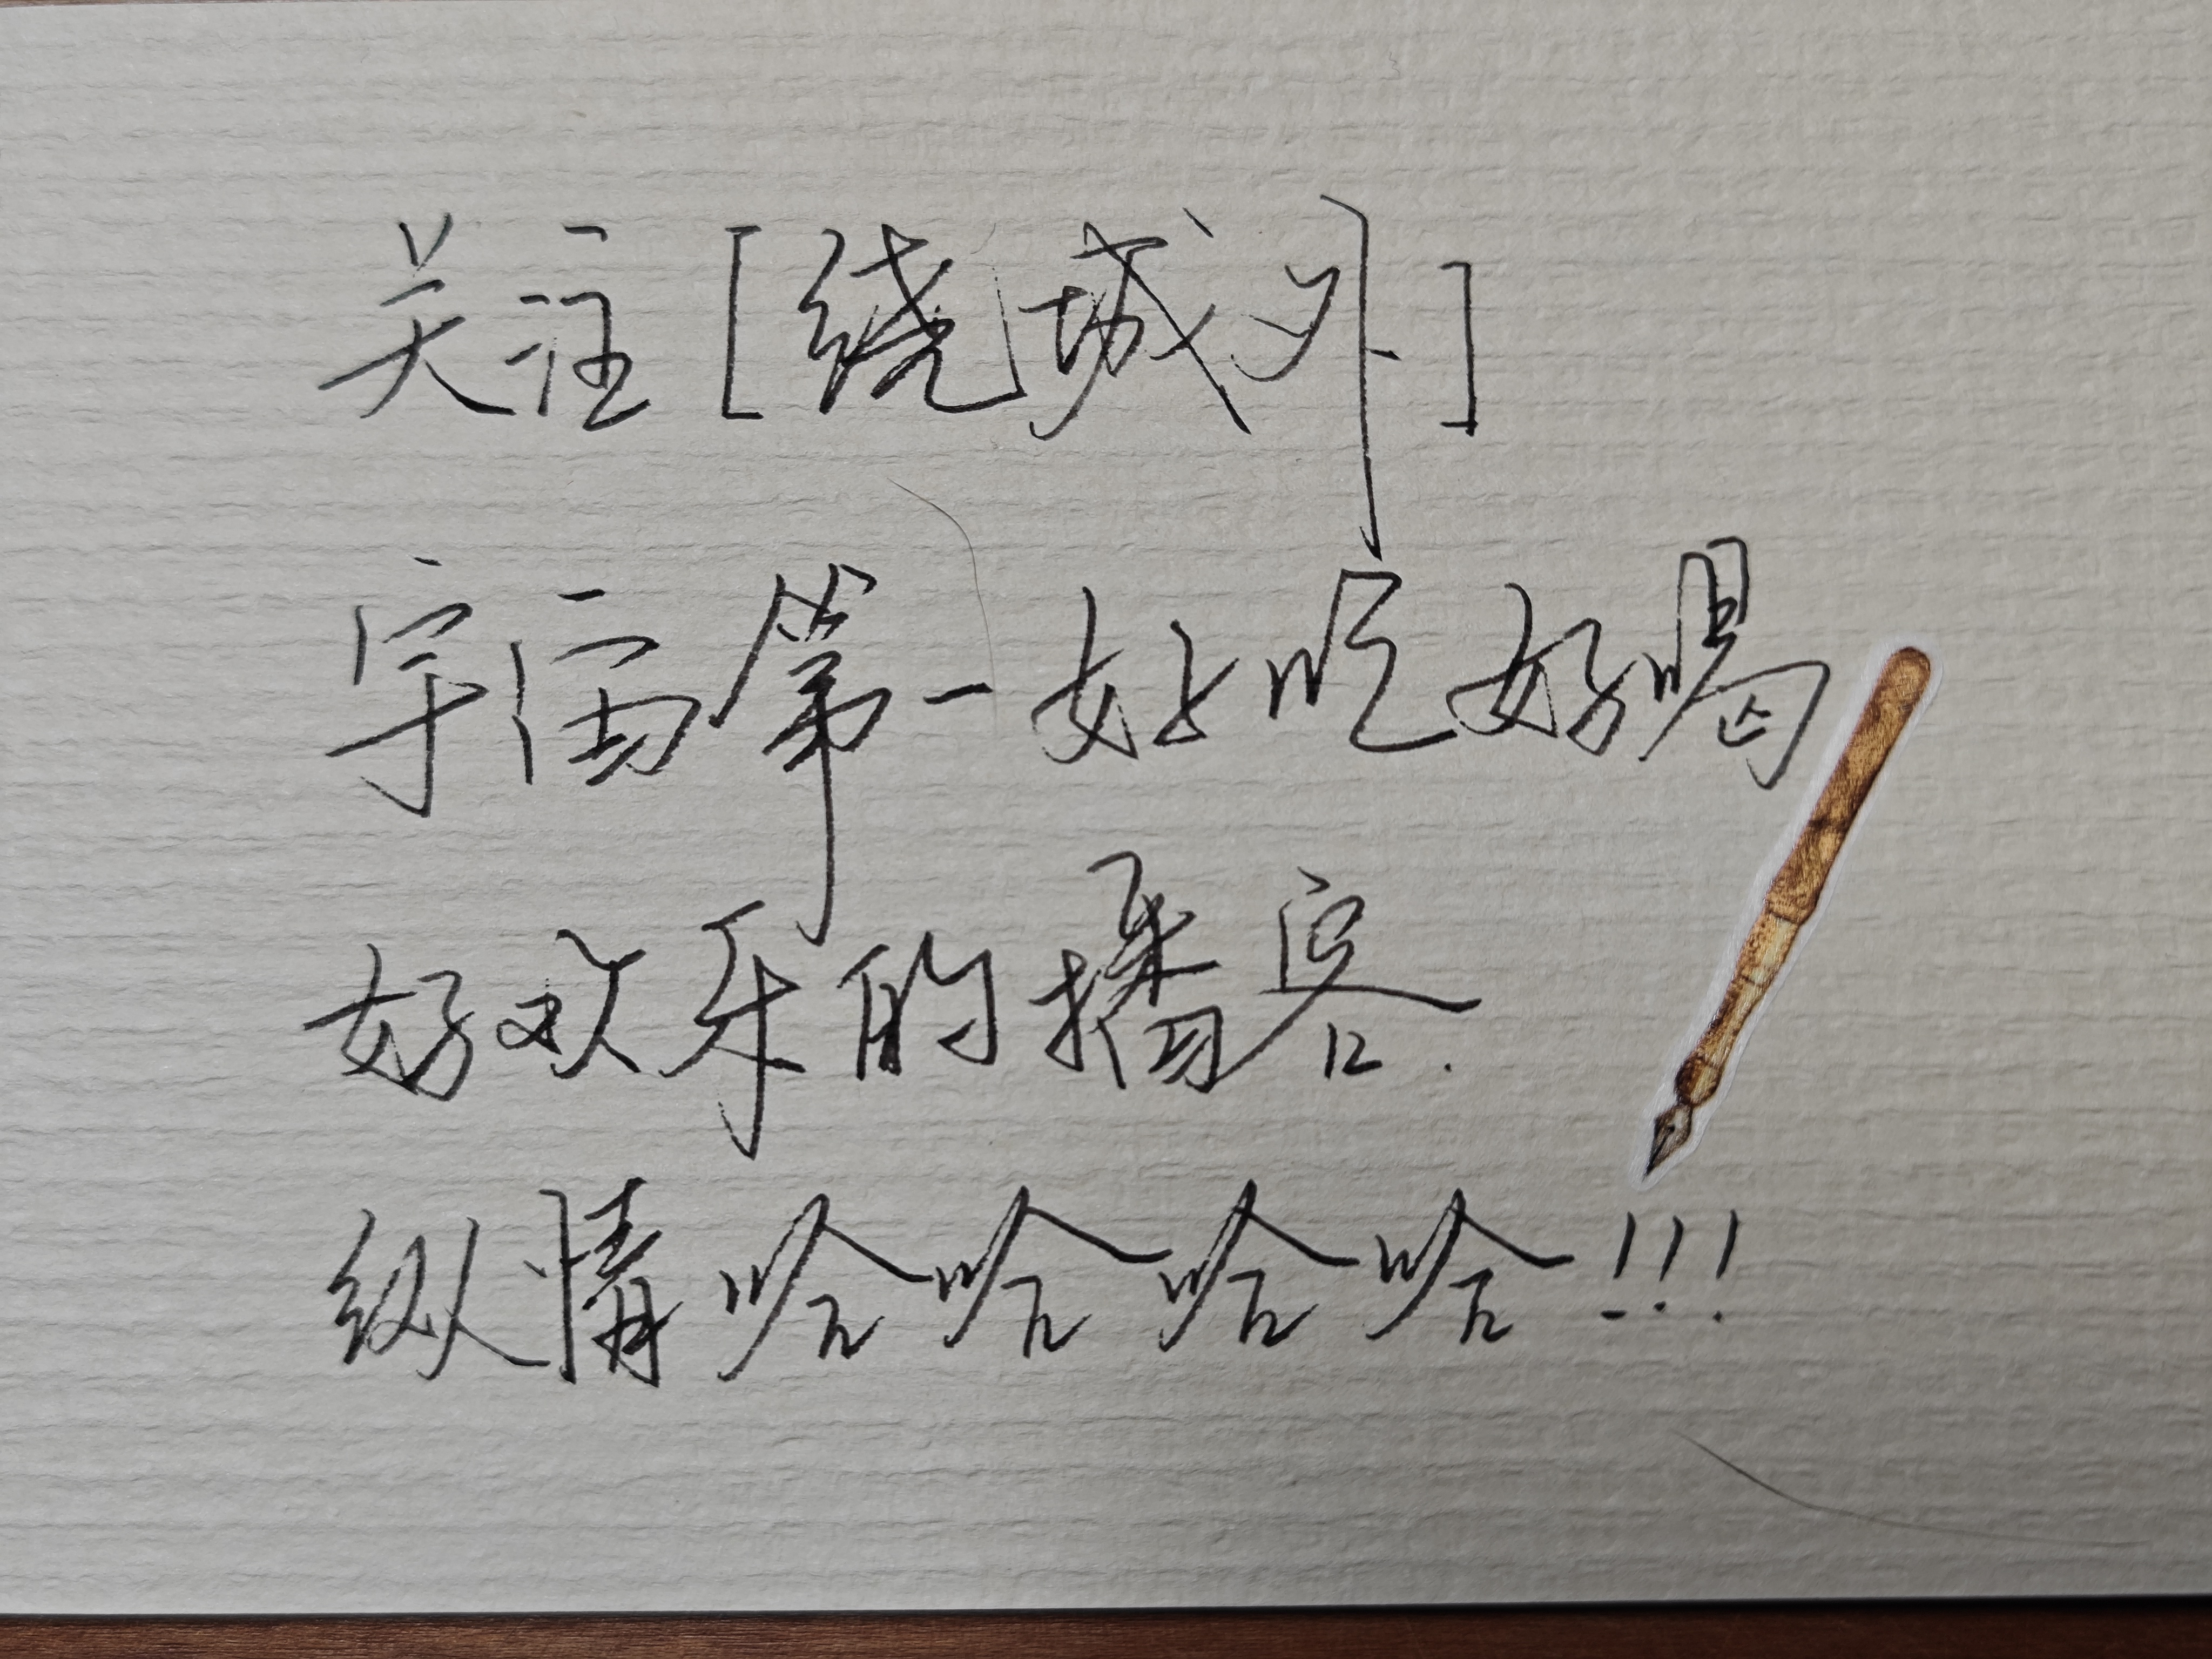 关注[绕城外]
宇宙第一好吃好喝
好欢乐的播客.
纵情哈哈哈哈!!!